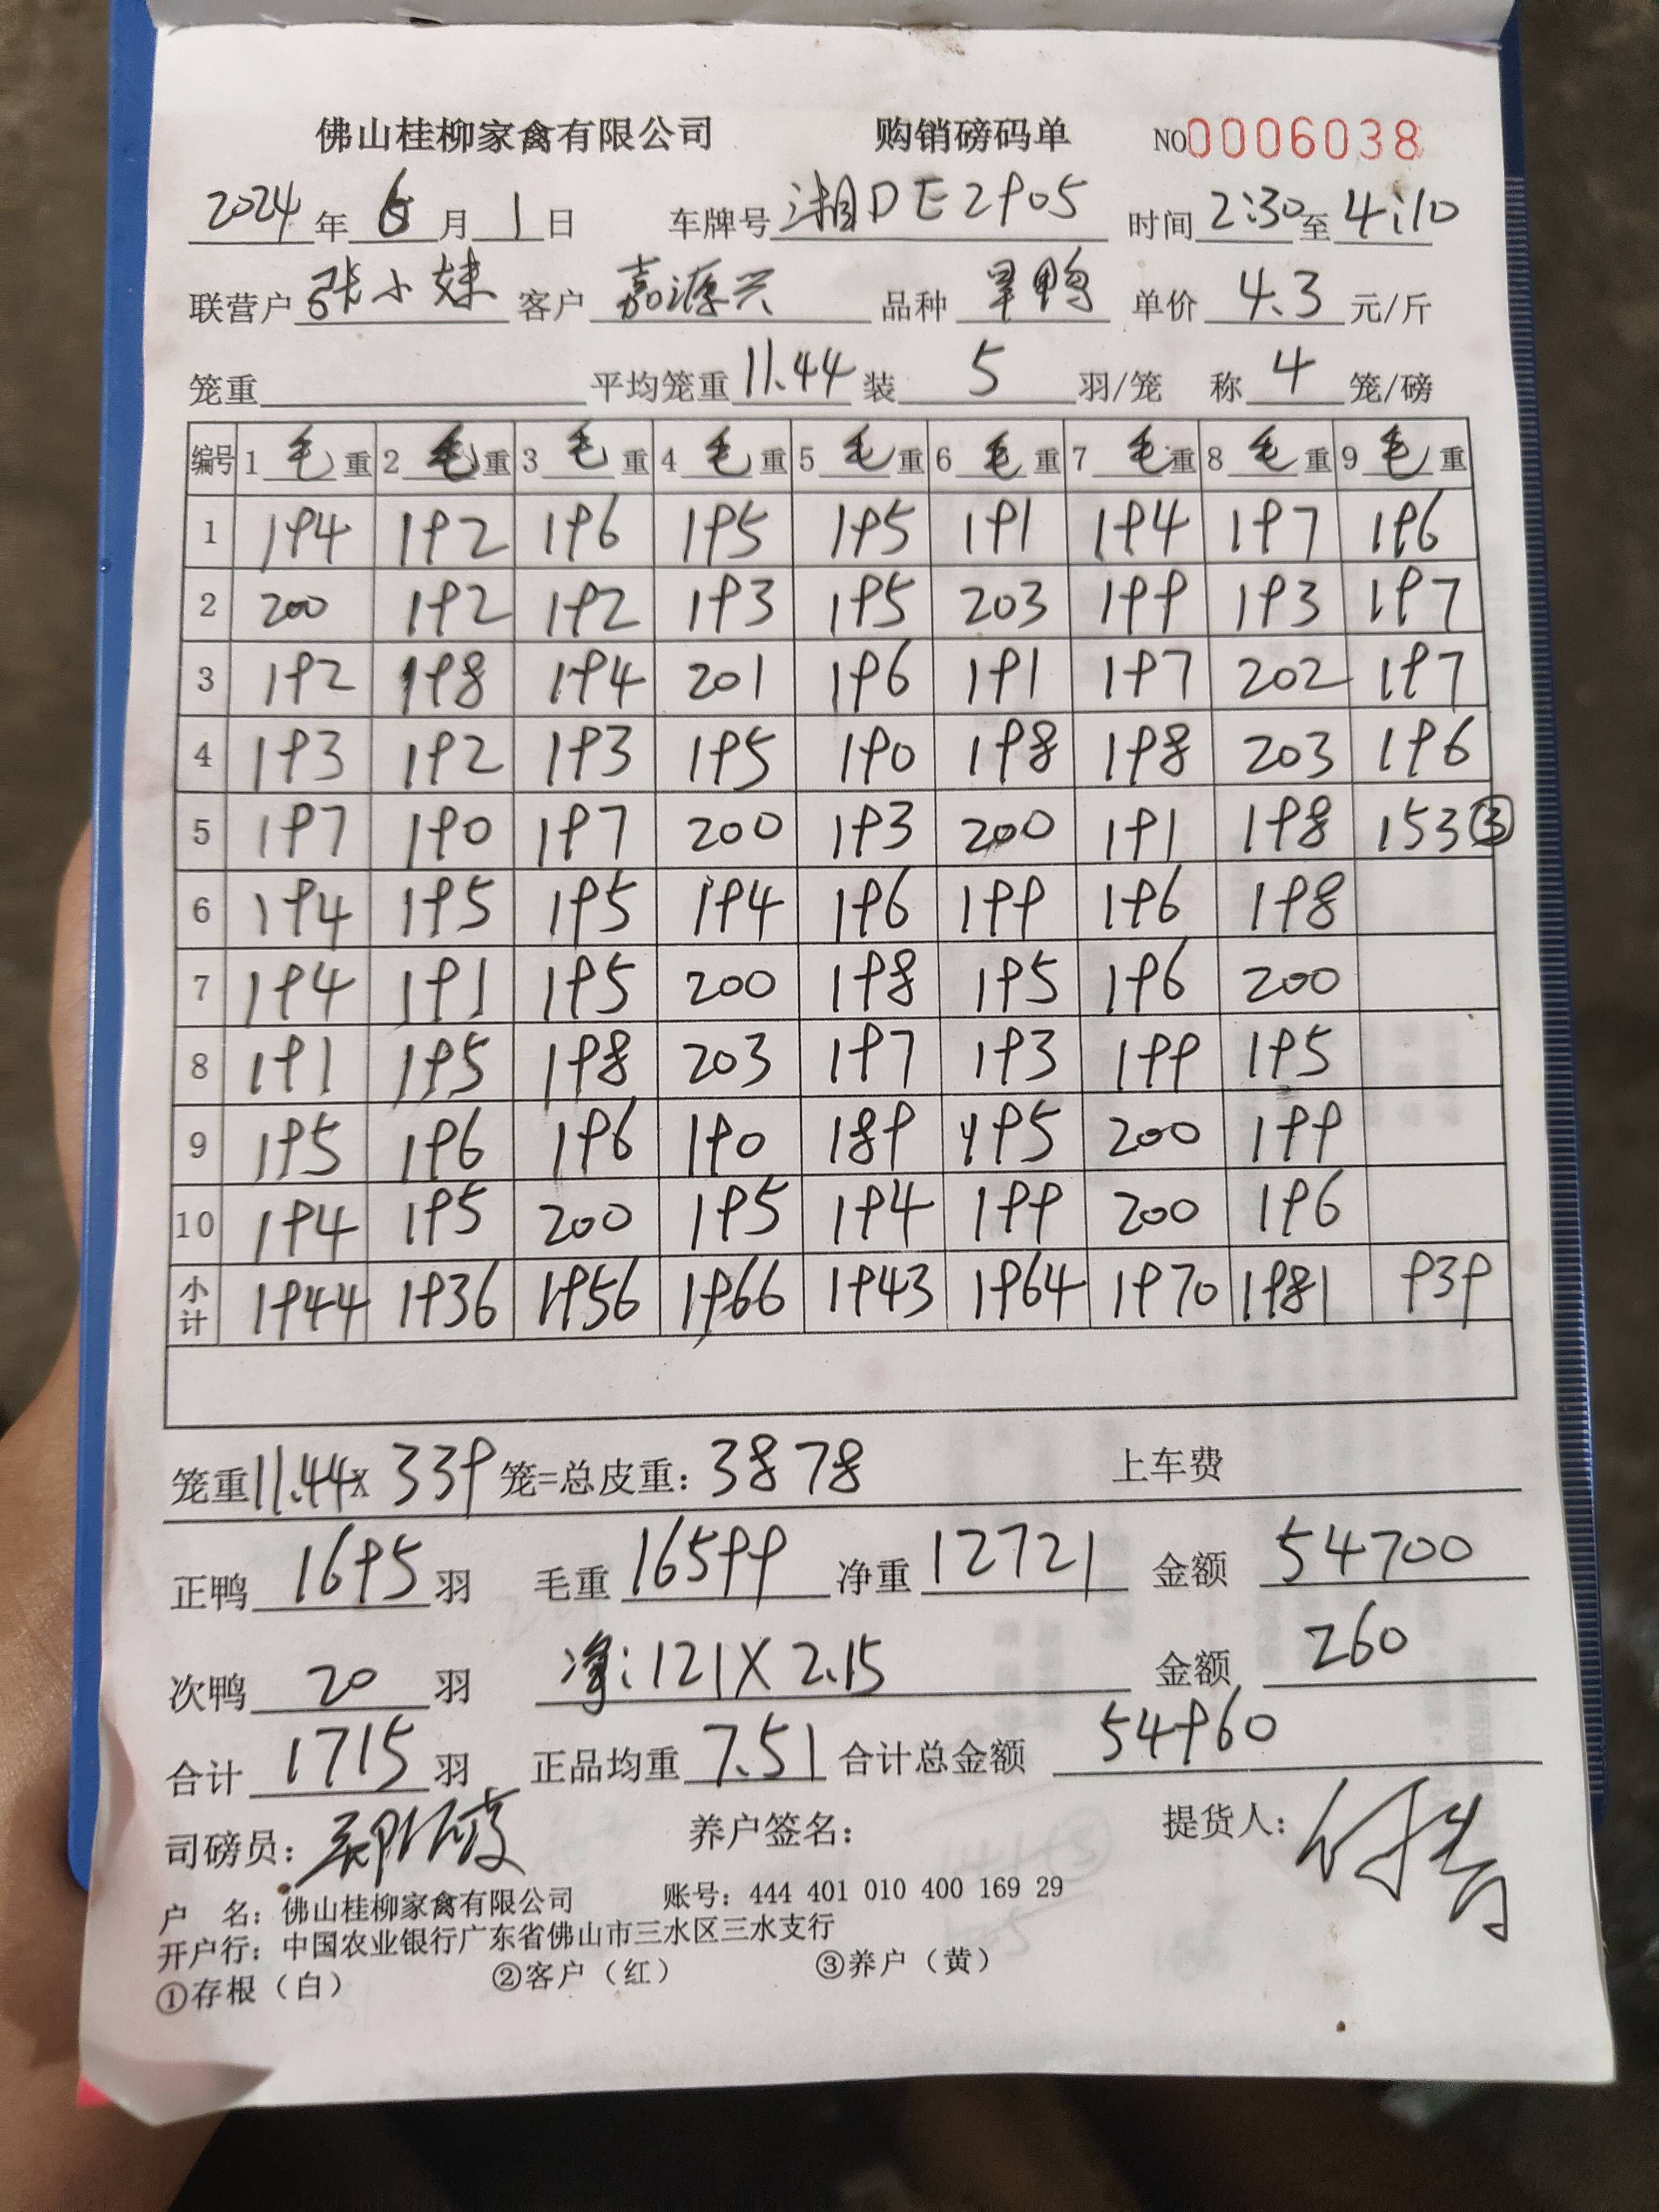 佛山桂柳家禽有限公司 购销磅码单 NO0006038
2024年6月1日 车牌号湘DE2905 时间2:30至4:10
联营户张小妹 客户嘉源兴 品种旱鸭 单价4.3元/斤
笼重 平均笼重11.44装5羽/笼 称4笼/磅
编号 1毛重 2毛重 3毛重 4毛重 5毛重 6毛重 7毛重 8毛重 9毛重
1 194 192 196 195 195 191 194 197 196
2 200 192 192 193 195 203 199 193 197
3 192 198 194 201 196 191 197 202 197
4 193 192 193 195 190 198 198 203 196
5 197 190 197 200 193 200 191 198 153③
6 194 195 195 194 196 199 196 198
7 194 191 195 200 198 195 196 200
8 191 195 198 203 197 193 199 195
9 195 196 196 190 189 195 200 199
10 194 195 200 195 194 199 200 196
小计 1944 1936 1956 1966 1943 1964 1970 1981 939
笼重11.44x339笼=总皮重：3878 上车费
正鸭1695羽 毛重16599 净重12721 金额54700
次鸭20羽 净：121X2.15 金额260
合计1715羽 正品均重7.51 合计总金额54960
司磅员： 养户签名： 提货人：
户 名：佛山桂柳家禽有限公司 账号：444 401 010 400 169 29
开户行：中国农业银行广东省佛山市三水区三水支行
①存根（白） ②客户（红） ③养户（黄）